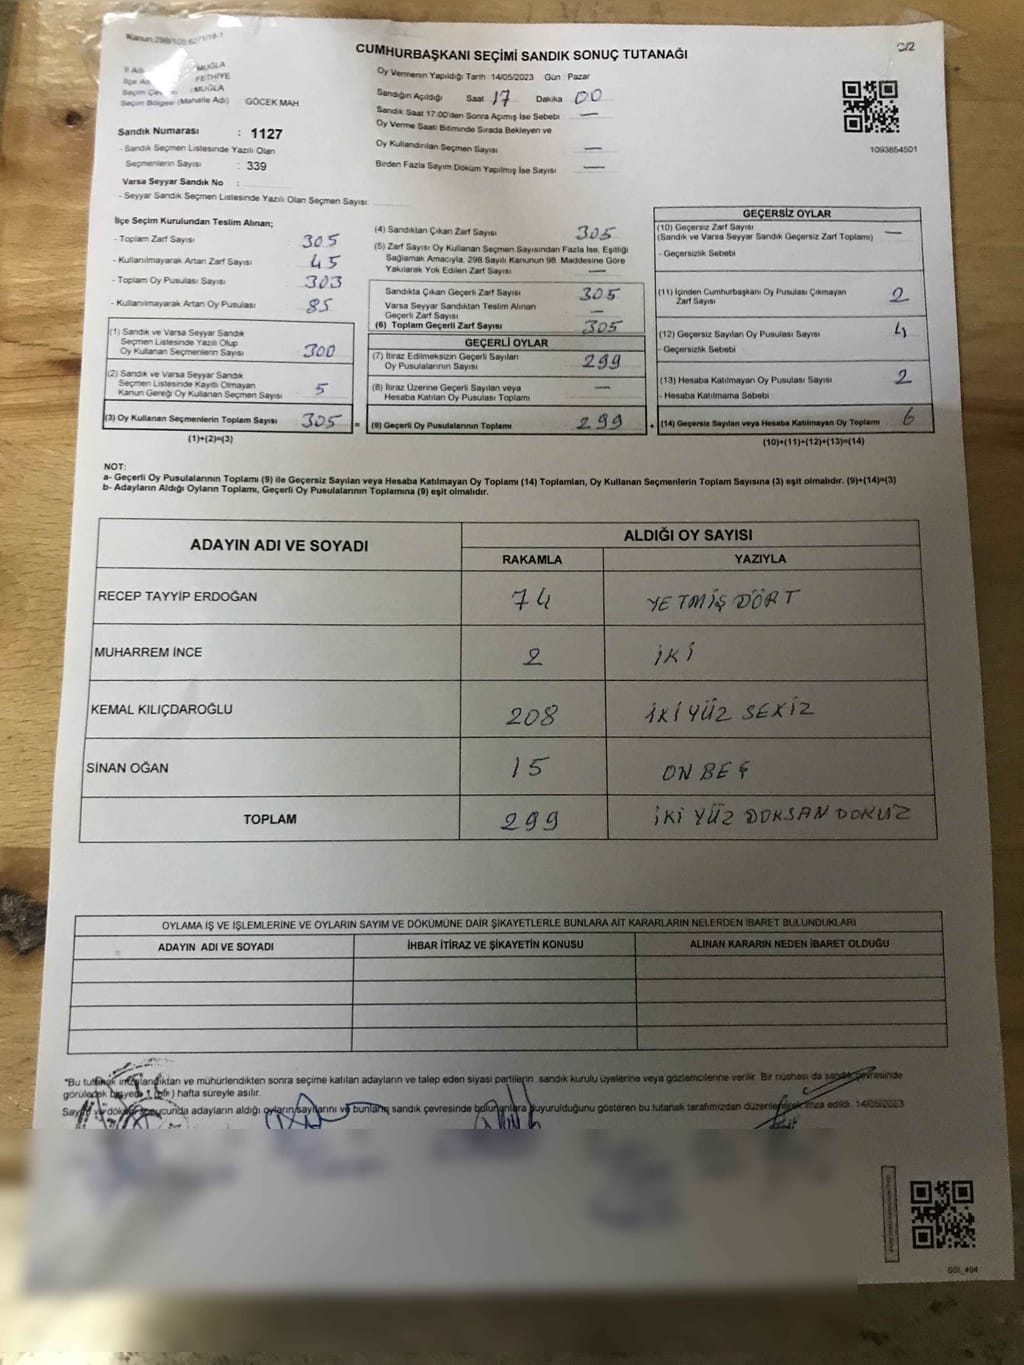 Kanun:298/105:6271/18-1
CUMHURBAŞKANI SEÇİMİ SANDIK SONUÇ TUTANAĞI
C/2
İl Adı : MUĞLA
İlçe Adı : FETHİYE
Seçim Çevresi : MUĞLA
Seçim Bölgesi (Mahalle Adı) : GÖCEK MAH
Sandık Numarası : 1127
- Sandık Seçmen Listesinde Yazılı Olan
Seçmenlerin Sayısı : 339
Varsa Seyyar Sandık No :
- Seyyar Sandık Seçmen Listesinde Yazılı Olan Seçmen Sayısı
Oy Vermenin Yapıldığı Tarih 14/05/2023 Gün : Pazar
Sandığın Açıldığı Saat 17 Dakika 00
Sandık Saat 17:00'den Sonra Açımış İse Sebebi —
Oy Verme Saati Bitiminde Sırada Bekleyen ve
Oy Kullandırılan Seçmen Sayısı —
Birden Fazla Sayım Döküm Yapılmış İse Sayısı —
1093854501
İlçe Seçim Kurulundan Teslim Alınan;
- Toplam Zarf Sayısı 305
- Kullanılmayarak Artan Zarf Sayısı 45
- Toplam Oy Pusulası Sayısı 303
- Kullanılmayarak Artan Oy Pusulası 85
(1) Sandık ve Varsa Seyyar Sandık
Seçmen Listesinde Yazılı Olup
Oy Kullanan Seçmenlerin Sayısı 300
(2) Sandık ve Varsa Seyyar Sandık
Seçmen Listesinde Kayıtlı Olmayan
Kanun Gereği Oy Kullanan Seçmen Sayısı 5
(3) Oy Kullanan Seçmenlerin Toplam Sayısı 305 =
(1)+(2)=(3)
(4) Sandıktan Çıkan Zarf Sayısı 305
(5) Zarf Sayısı Oy Kullanan Seçmen Sayısından Fazla İse, Eşitliği
Sağlamak Amacıyla, 298 Sayılı Kanunun 98. Maddesine Göre
Yakılarak Yok Edilen Zarf Sayısı —
Sandıkta Çıkan Geçerli Zarf Sayısı 305
Varsa Seyyar Sandıktan Teslim Alınan
Geçerli Zarf Sayısı —
(6) Toplam Geçerli Zarf Sayısı 305
GEÇERLİ OYLAR
(7) İtiraz Edilmeksizin Geçerli Sayılan
Oy Pusulalarının Sayısı 299
(8) İtiraz Üzerine Geçerli Sayılan veya
Hesaba Katılan Oy Pusulası Toplamı —
(9) Geçerli Oy Pusulalarının Toplamı 299 +
GEÇERSİZ OYLAR
(10) Geçersiz Zarf Sayısı —
(Sandık ve Varsa Seyyar Sandık Geçersiz Zarf Toplamı)
- Geçersizlik Sebebi
(11) İçinden Cumhurbaşkanı Oy Pusulası Çıkmayan
Zarf Sayısı 2
(12) Geçersiz Sayılan Oy Pusulası Sayısı 4
- Geçersizlik Sebebi
(13) Hesaba Katılmayan Oy Pusulası Sayısı 2
- Hesaba Katılmama Sebebi
(14) Geçersiz Sayılan veya Hesaba Katılmayan Oy Toplamı 6
(10)+(11)+(12)+(13)=(14)
NOT:
a- Geçerli Oy Pusulalarının Toplamı (9) ile Geçersiz Sayılan veya Hesaba Katılmayan Oy Toplamı (14) Toplamları, Oy Kullanan Seçmenlerin Toplam Sayısına (3) eşit olmalıdır. (9)+(14)=(3)
b- Adayların Aldığı Oyların Toplamı, Geçerli Oy Pusulalarının Toplamına (9) eşit olmalıdır.
ADAYIN ADI VE SOYADI
ALDIĞI OY SAYISI
RAKAMLA YAZIYLA
RECEP TAYYİP ERDOĞAN 74 YETMİŞ DÖRT
MUHARREM İNCE 2 İKİ
KEMAL KILIÇDAROĞLU 208 İKİ YÜZ SEKİZ
SİNAN OĞAN 15 ON BEŞ
TOPLAM 299 İKİ YÜZ DOKSAN DOKUZ
OYLAMA İŞ VE İŞLEMLERİNE VE OYLARIN SAYIM VE DÖKÜMÜNE DAİR ŞİKAYETLERLE BUNLARA AİT KARARLARIN NELERDEN İBARET BULUNDUKLARI
ADAYIN ADI VE SOYADI İHBAR İTİRAZ VE ŞİKAYETİN KONUSU ALINAN KARARIN NEDEN İBARET OLDUĞU
"Bu tutanak imzalandıktan ve mühürlendikten sonra seçime katılan adayların ve talep eden siyasi partilerin sandık kurulu üyelerine veya gözlemcilerine verilir. Bir nüshası da sandık çevresinde
görülecek bir yere 1 (bir) hafta süreyle asılır.
Sayım ve döküm sonucunda adayların aldığı oyların sayılarını ve bunların sandık çevresinde bulunanlara duyurulduğunu gösteren bu tutanak tarafımızdan düzenlenerek imza edildi. 14/05/2023